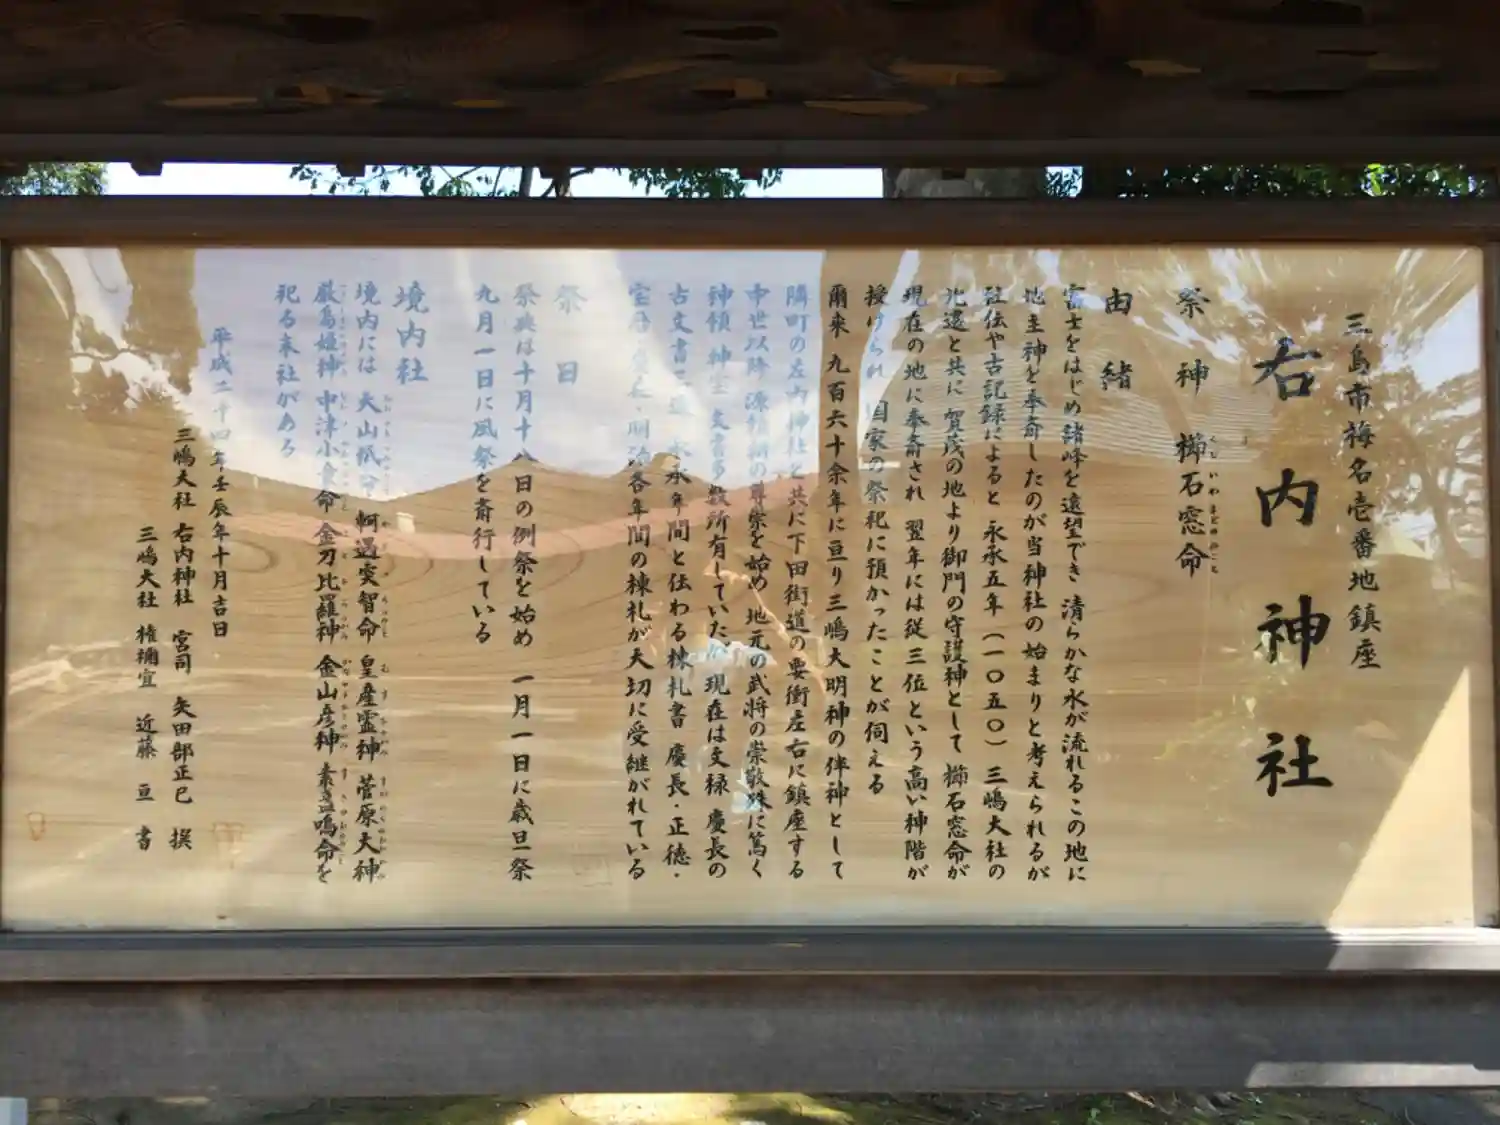 三島市梅名壱番地鎮座
右内神社
祭神 櫛石窓命
由緒
富士をはじめ諸峰を遠望でき 清らかな水が流れるこの地に
地主神を奉斎したのが当神社の始まりと考えられるが
社伝や古記録によると 永承五年(一〇五〇)三嶋大社の
北遷と共に 賀茂の地より御門の守護神として 櫛石窓命が
現在の地に奉斎され 翌年には従三位という高い神階が
授けられ 国家の祭祀に預かったことが伺える
爾来 九百六十余年に亘り三嶋大明神の伴神として
隣町の左内神社と共に下田街道の要衝左右に鎮座する
中世以降 源頼朝の尊崇を始め 地元の武将の崇敬殊に篤く
神領 神宝 文書多数所有していたが 現在は文禄 慶長の
古文書 永承年間と伝わる棟札書 慶長・正徳・
宝暦 各年間の棟札が大切に受継がれている
祭日
祭典は十月十八日の例祭を始め 一月一日に歳旦祭
九月一日に風祭を斎行している
境内社
境内には 大山祇命 軻遇突智命 皇産霊神 菅原大神
厳島姫神 中津小童命 金刀比羅神 金山彦神 素盞嗚命を
祀る末社がある
平成二十四年壬辰年十月吉日
三嶋大社 右内神社 宮司 矢田部正巳 撰
三嶋大社 権禰宜 近藤 亘 書